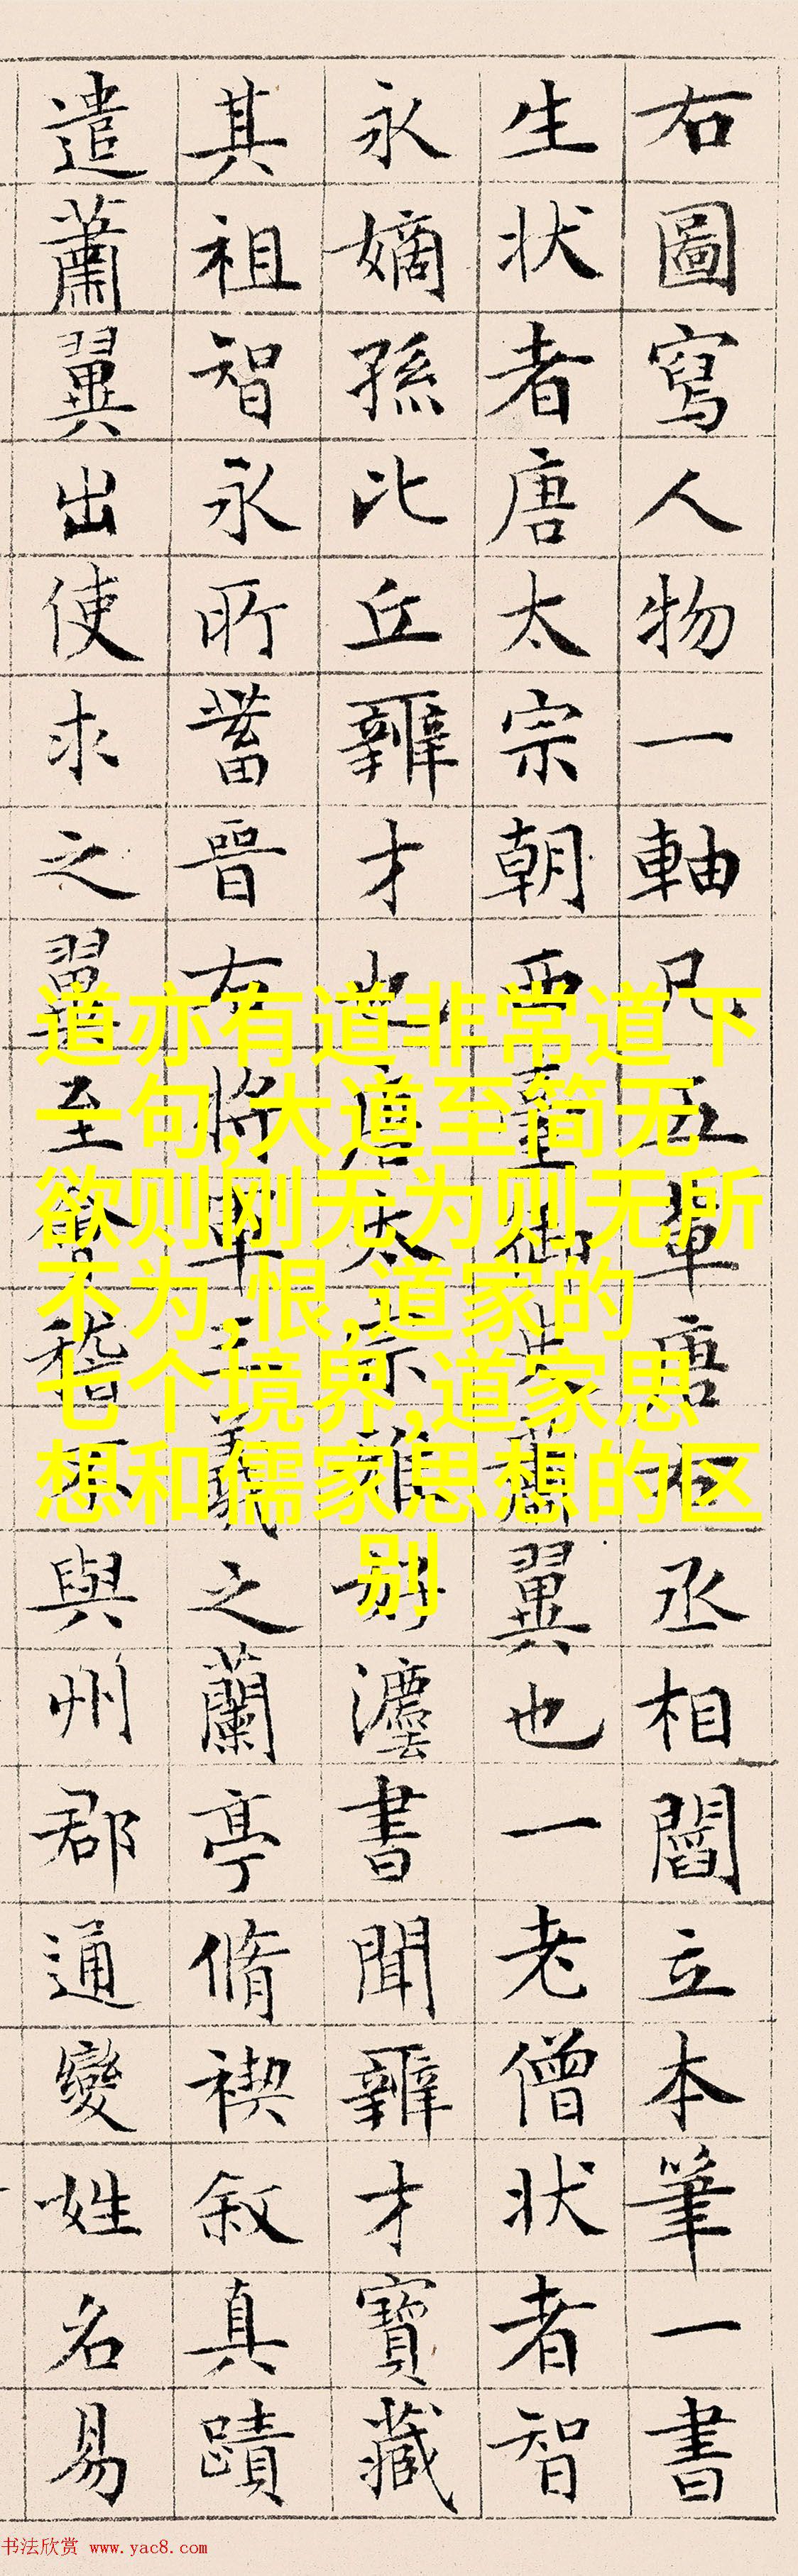 右圖寫人物一軸凡五輩唐右丞相閻立本筆一書
生状者唐太宗朝西臺御史蕭翼也一老僧状者智
永嫡孫比丘辯才也唐太宗雅好灋書聞辯才寶藏
其祖智永所蓄晉右將軍王羲之蘭亭脩禊叙真蹟
遣蕭翼出使求之翼至會稽不與州郡通變姓名易
道亦有道非常道下
一句,大道至简无
欲则刚无为则无所
不为,恨,道家的
七个境界,道家思
想和儒家思想的区
别
书法欣赏 www.yac8.com